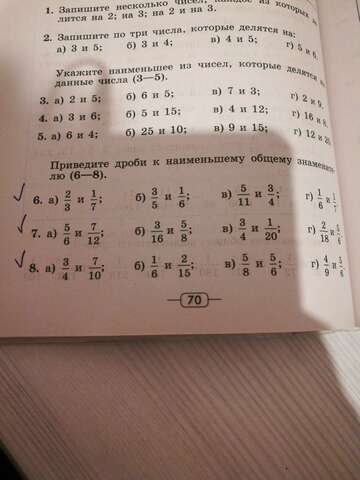 1. Запишите несколько чисел, каждое из которых де-
лится на 2; на 3; на 2 и на 3.
2. Запишите по три числа, которые делятся на:
а) 3 и 5; б) 3 и 4; в) 4 и 5; г) 5 и 6.
Укажите наименьшее из чисел, которые делятся на
данные числа (3—5).
3. а) 2 и 5; б) 6 и 5; в) 7 и 3; г) 2 и 9.
4. а) 3 и 6; б) 5 и 15; в) 4 и 12; г) 16 и 8.
5. а) 6 и 4; б) 25 и 10; в) 9 и 15; г) 12 и 20
Приведите дроби к наименьшему общему знамена-
лю (6—8).
6. а) 2/3 и 1/7; б) 3/5 и 1/6; в) 5/11 и 3/4; г) 1/6 и 1/7
7. а) 5/6 и 7/12; б) 3/16 и 5/8; в) 3/4 и 1/20; г) 2/18 и 5/6
8. а) 3/4 и 7/10; б) 1/6 и 2/15; в) 5/8 и 5/6; г) 4/9 и 5/6
70